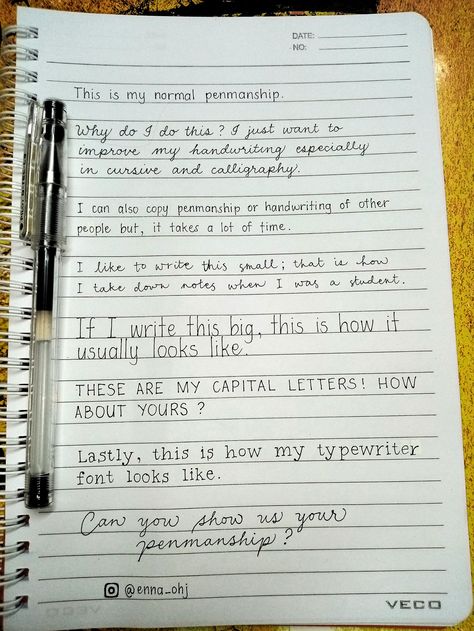 DATE:
NO:
This is my normal penmanship.
Why do I do this? I just want to
improve my handwriting especially
in cursive and calligraphy.
I can also copy penmanship or handwriting of other
people but, it takes a lot of time.
I like to write this small; that is how
I take down notes when I was a student.
If I write this big, this is how it
usually looks like.
THESE ARE MY CAPITAL LETTERS! HOW
ABOUT YOURS ?
Lastly, this is how my typewriter
font looks like.
Can you show us your
penmanship?
@enna_ohj
VECO